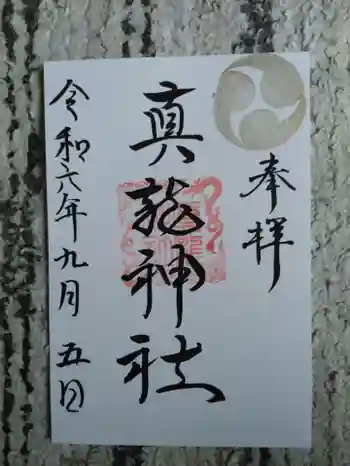 奉拝
真龍神社
令和六年九月五日